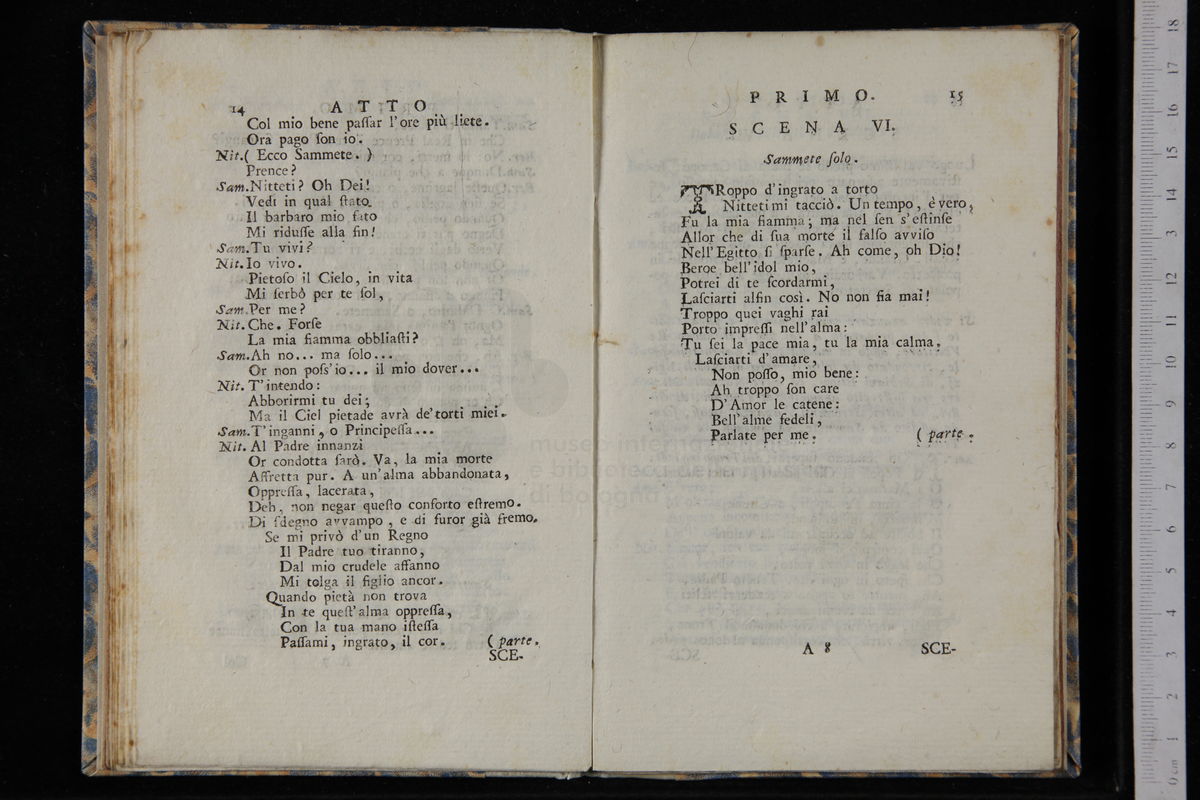 14 ATTO
Col mio bene paſſar l'ore più liete.
Ora pago ſon io.
Nit. ( Ecco Sammete. )
Prence?
Sam. Nitteti? Oh Dei!
Vedi in qual ſtato
Il barbaro mio fato
Mi riduſſe alla fin!
Sam. Tu vivi?
Nit. Io vivo.
Pietoſo il Cielo, in vita
Mi ſerbò per te ſol,
Sam. Per me?
Nit. Che. Forſe
La mia fiamma obbliaſti?
Sam. Ah no... ma ſolo...
Or non poſs'io... il mio dover...
Nit. T'intendo:
Abborirmi tu dei;
Ma il Ciel pietade avrà de' torti miei.
Sam. T'inganni, o Principeſſa...
Nit. Al Padre innanzi
Or condotta ſarò. Va, la mia morte
Affretta pur. A un'alma abbandonata,
Oppreſſa, lacerata,
Deh, non negar queſto conforto eſtremo.
Di ſdegno avvampo, e di furor già fremo.
Se mi privò d'un Regno
Il Padre tuo tiranno,
Dal mio crudele affanno
Mi tolga il figlio ancor.
Quando pietà non trova
In te queſt'alma oppreſſa,
Con la tua mano iſteſſa
Paſſami, ingrato, il cor. ( parte.
SCE-
PRIMO. 15
SCENA VI.
Sammete ſolo.
TRoppo d'ingrato a torto
Nitteti mi tacciò. Un tempo, è vero,
Fu la mia fiamma; ma nel ſen s'eſtinſe
Allor che di ſua morte il falſo avviſo
Nell'Egitto ſi ſparſe. Ah come, oh Dio!
Beroe bell'idol mio,
Potrei di te ſcordarmi,
Laſciarti alfin così. No non fia mai!
Troppo quei vaghi rai
Porto impreſſi nell'alma:
Tu ſei la pace mia, tu la mia calma.
Laſciarti d'amare,
Non poſſo, mio bene:
Ah troppo ſon care
D'Amor le catene:
Bell'alme fedeli,
Parlate per me. ( parte.
A 8 SCE-
museo internazionale
e biblioteca della musica
di bologna